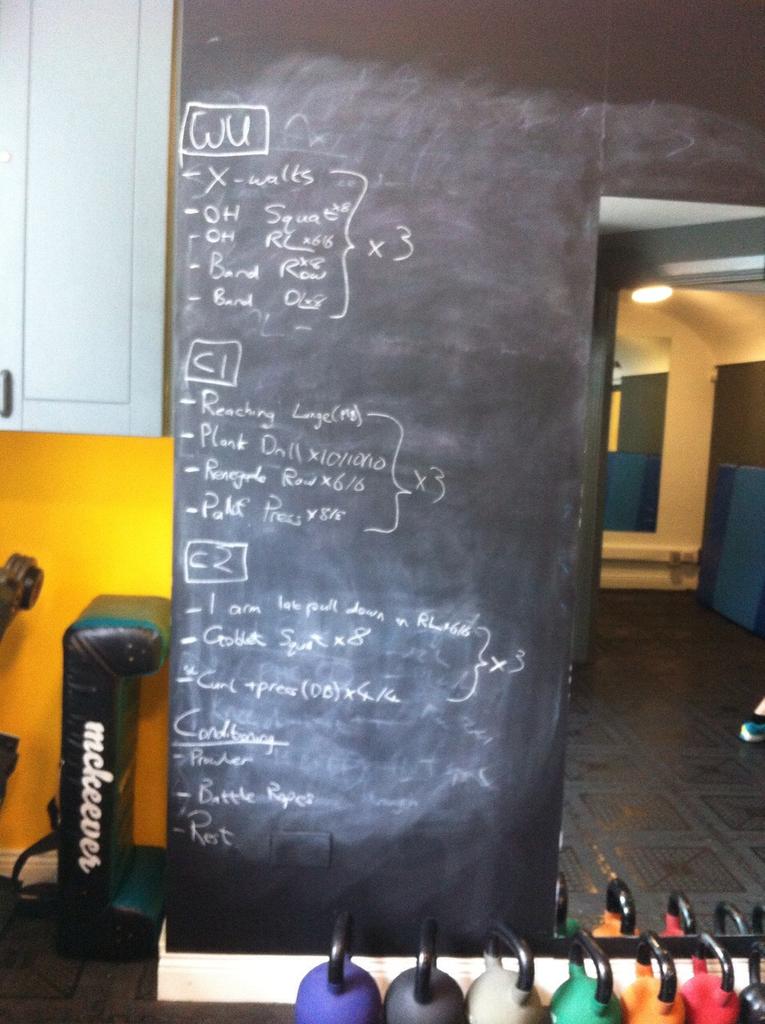 WU
- X-walks
- OH Squat x8
- OH RL x6/6
- Band Row x8
- Band DL x8
x3
C1
- Reaching Lunge (MB)
- Plank Drill x10/10/10
- Renegade Row x6/6
- Pallof Press x8/8
x3
C2
- 1 arm lat pull down in RL x6/6
- Goblet Squat x8
- Curl + press (DB) x4/4
x3
Conditioning
- Prowler
- Battle Ropes
- Rest
mckeever